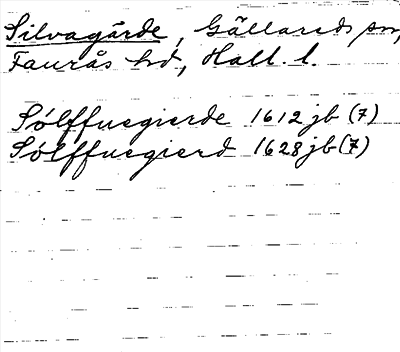 Silvagärde, Gällareds sn,
Faurås hd, Hall. l.
Sølffuegierde 1612 jb (7)
Sølffuegierd 1628 jb (7)